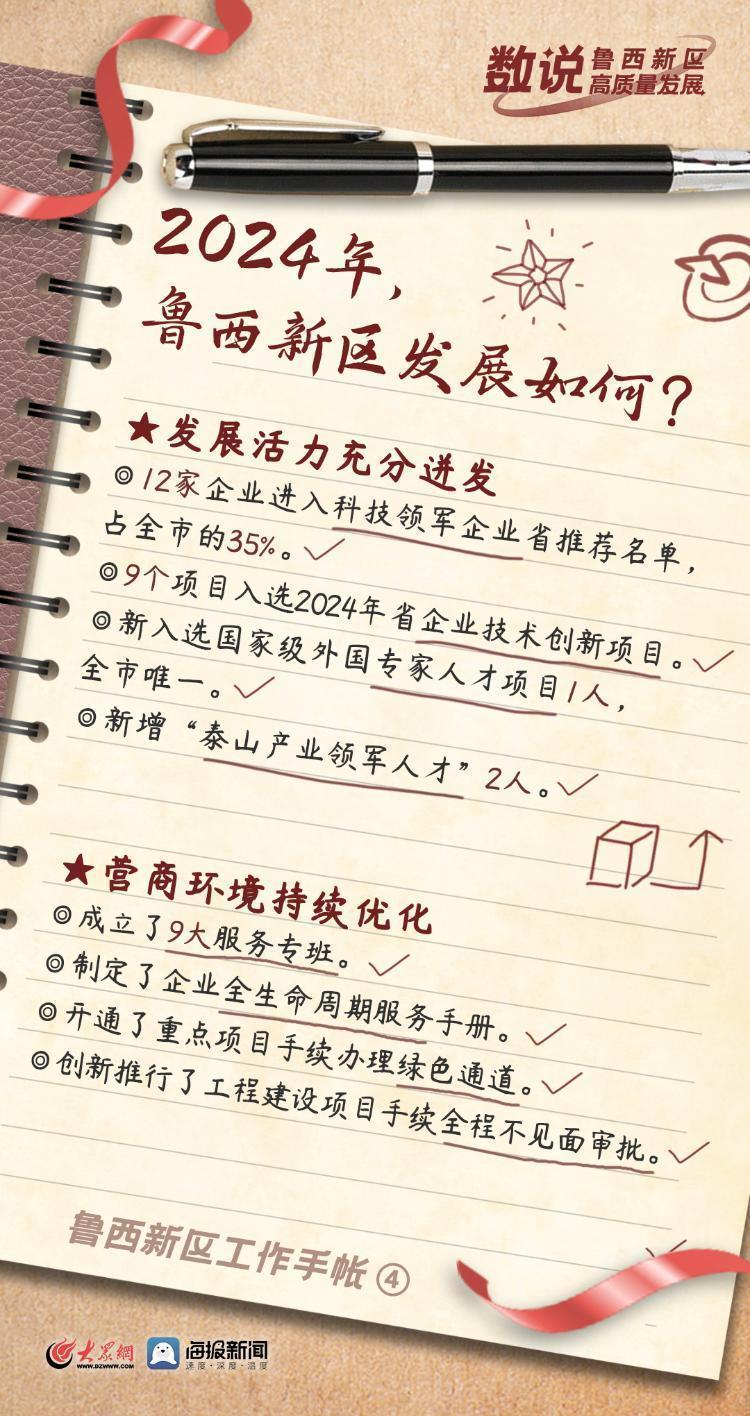 数说 鲁西新区
高质量发展
2024年，
鲁西新区发展如何？
★发展活力充分迸发
◎12家企业进入科技领军企业省推荐名单，
占全市的35%。
◎9个项目入选2024年省企业技术创新项目。
◎新入选国家级外国专家人才项目1人，
全市唯一。
◎新增“泰山产业领军人才”2人。
★营商环境持续优化
◎成立了9大服务专班。
◎制定了企业全生命周期服务手册。
◎开通了重点项目手续办理绿色通道。
◎创新推行了工程建设项目手续全程不见面审批。
鲁西新区工作手帐④
大众網
WWW.DZWWW.COM
海报新闻
速度·深度·温度